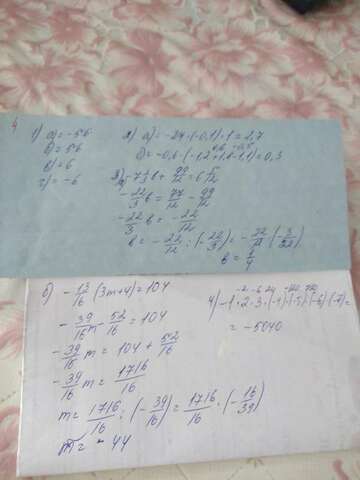 4
1) а) = -56
б) = 56
в) = 6
г) = -6
2) а) = -24·(-0,1)-1 = 2,7
б) = -0,6·(-1,2+1,8-1,1) = 0,3
3) -7⅓в + 99/12 = 6 5/12
-22/3 в = 77/12 - 99/12
-22/3 в = -22/12
в = -22/12 : (-22/3) = -22/12 · (-3/22)
в = 1/4
б) -13/16 (3m+4) = 104
-39/16 m - 52/16 = 104
-39/16 m = 104 + 52/16
-39/16 m = 1716/16
m = 1716/16 : (-39/16) = 1716/16 · (-16/39)
m = -44
4) -1·2·3·(-4)·(-5)·(-6)·(-7) =
= -5040